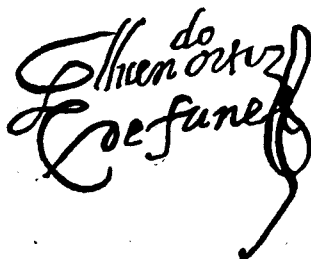 El licendo ortiz
de funes